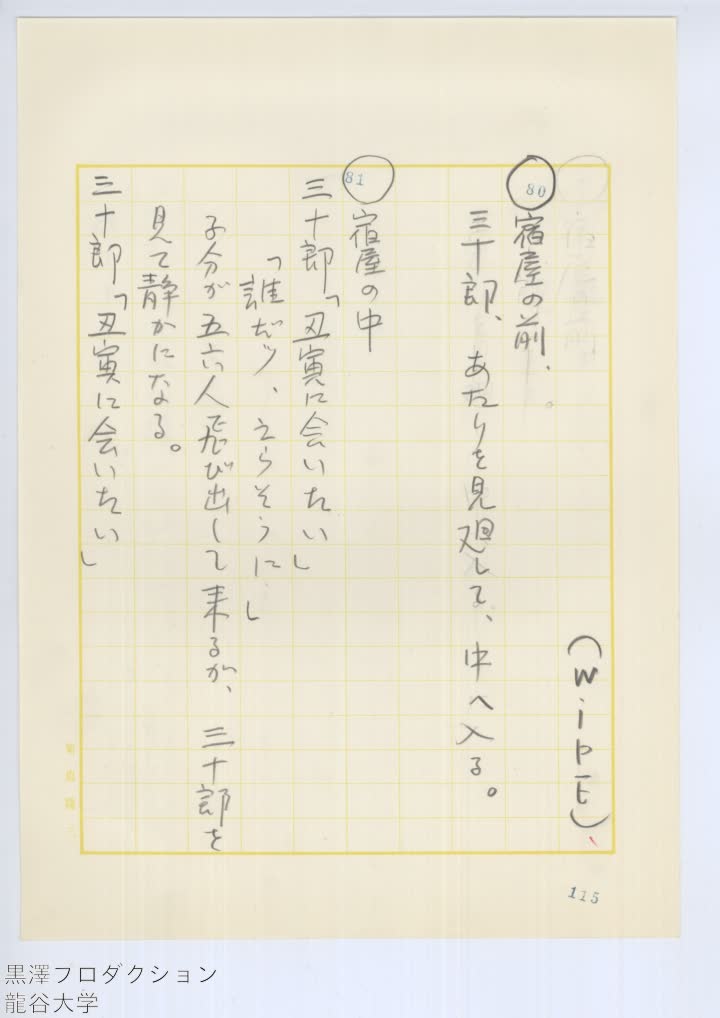 (WIPE)
80 宿屋の前、
三十郎、あたりを見廻して、中へ入る。
81 宿屋の中
三十郎「丑寅に会いたい」
「誰だッ、えらそうに」
子分が五六人飛び出して来るが、三十郎を
見て静かになる。
三十郎「丑寅に会いたい」
115
黒澤フロダクション
龍谷大学